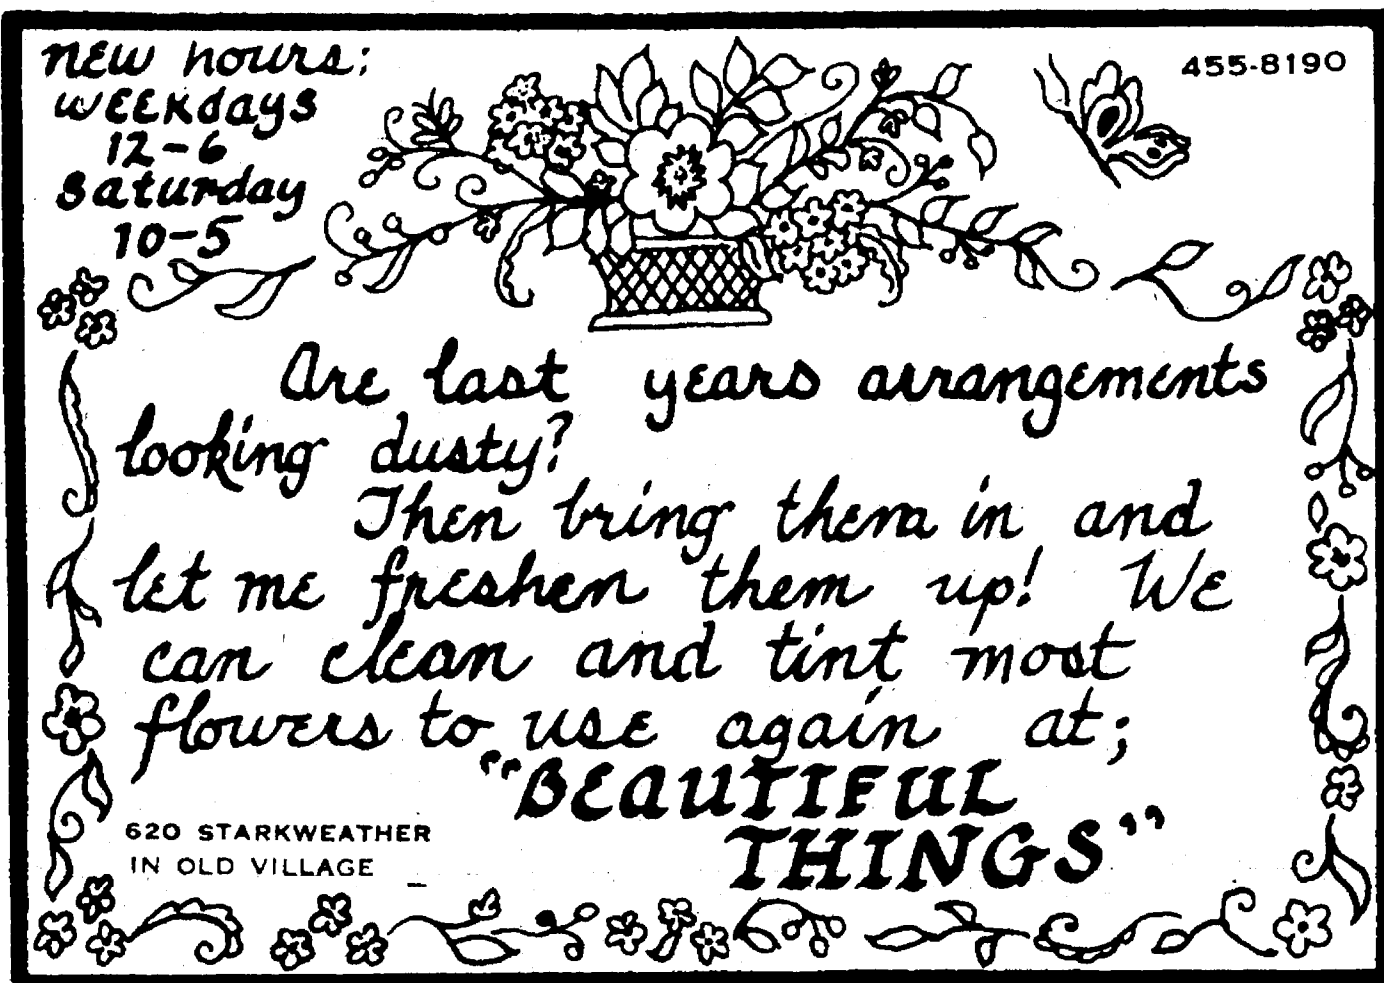 new hours:
weekdays
12-6
saturday
10-5
455-8190
Are last years arrangements
looking dusty?
Then bring them in and
let me freshen them up! We
can clean and tint most
flowers to use again at;
"BEAUTIFUL
THINGS"
620 STARKWEATHER
IN OLD VILLAGE